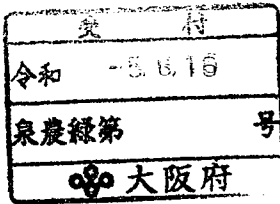 受付
令和 -5.6.16
泉農緑第 号
大阪府